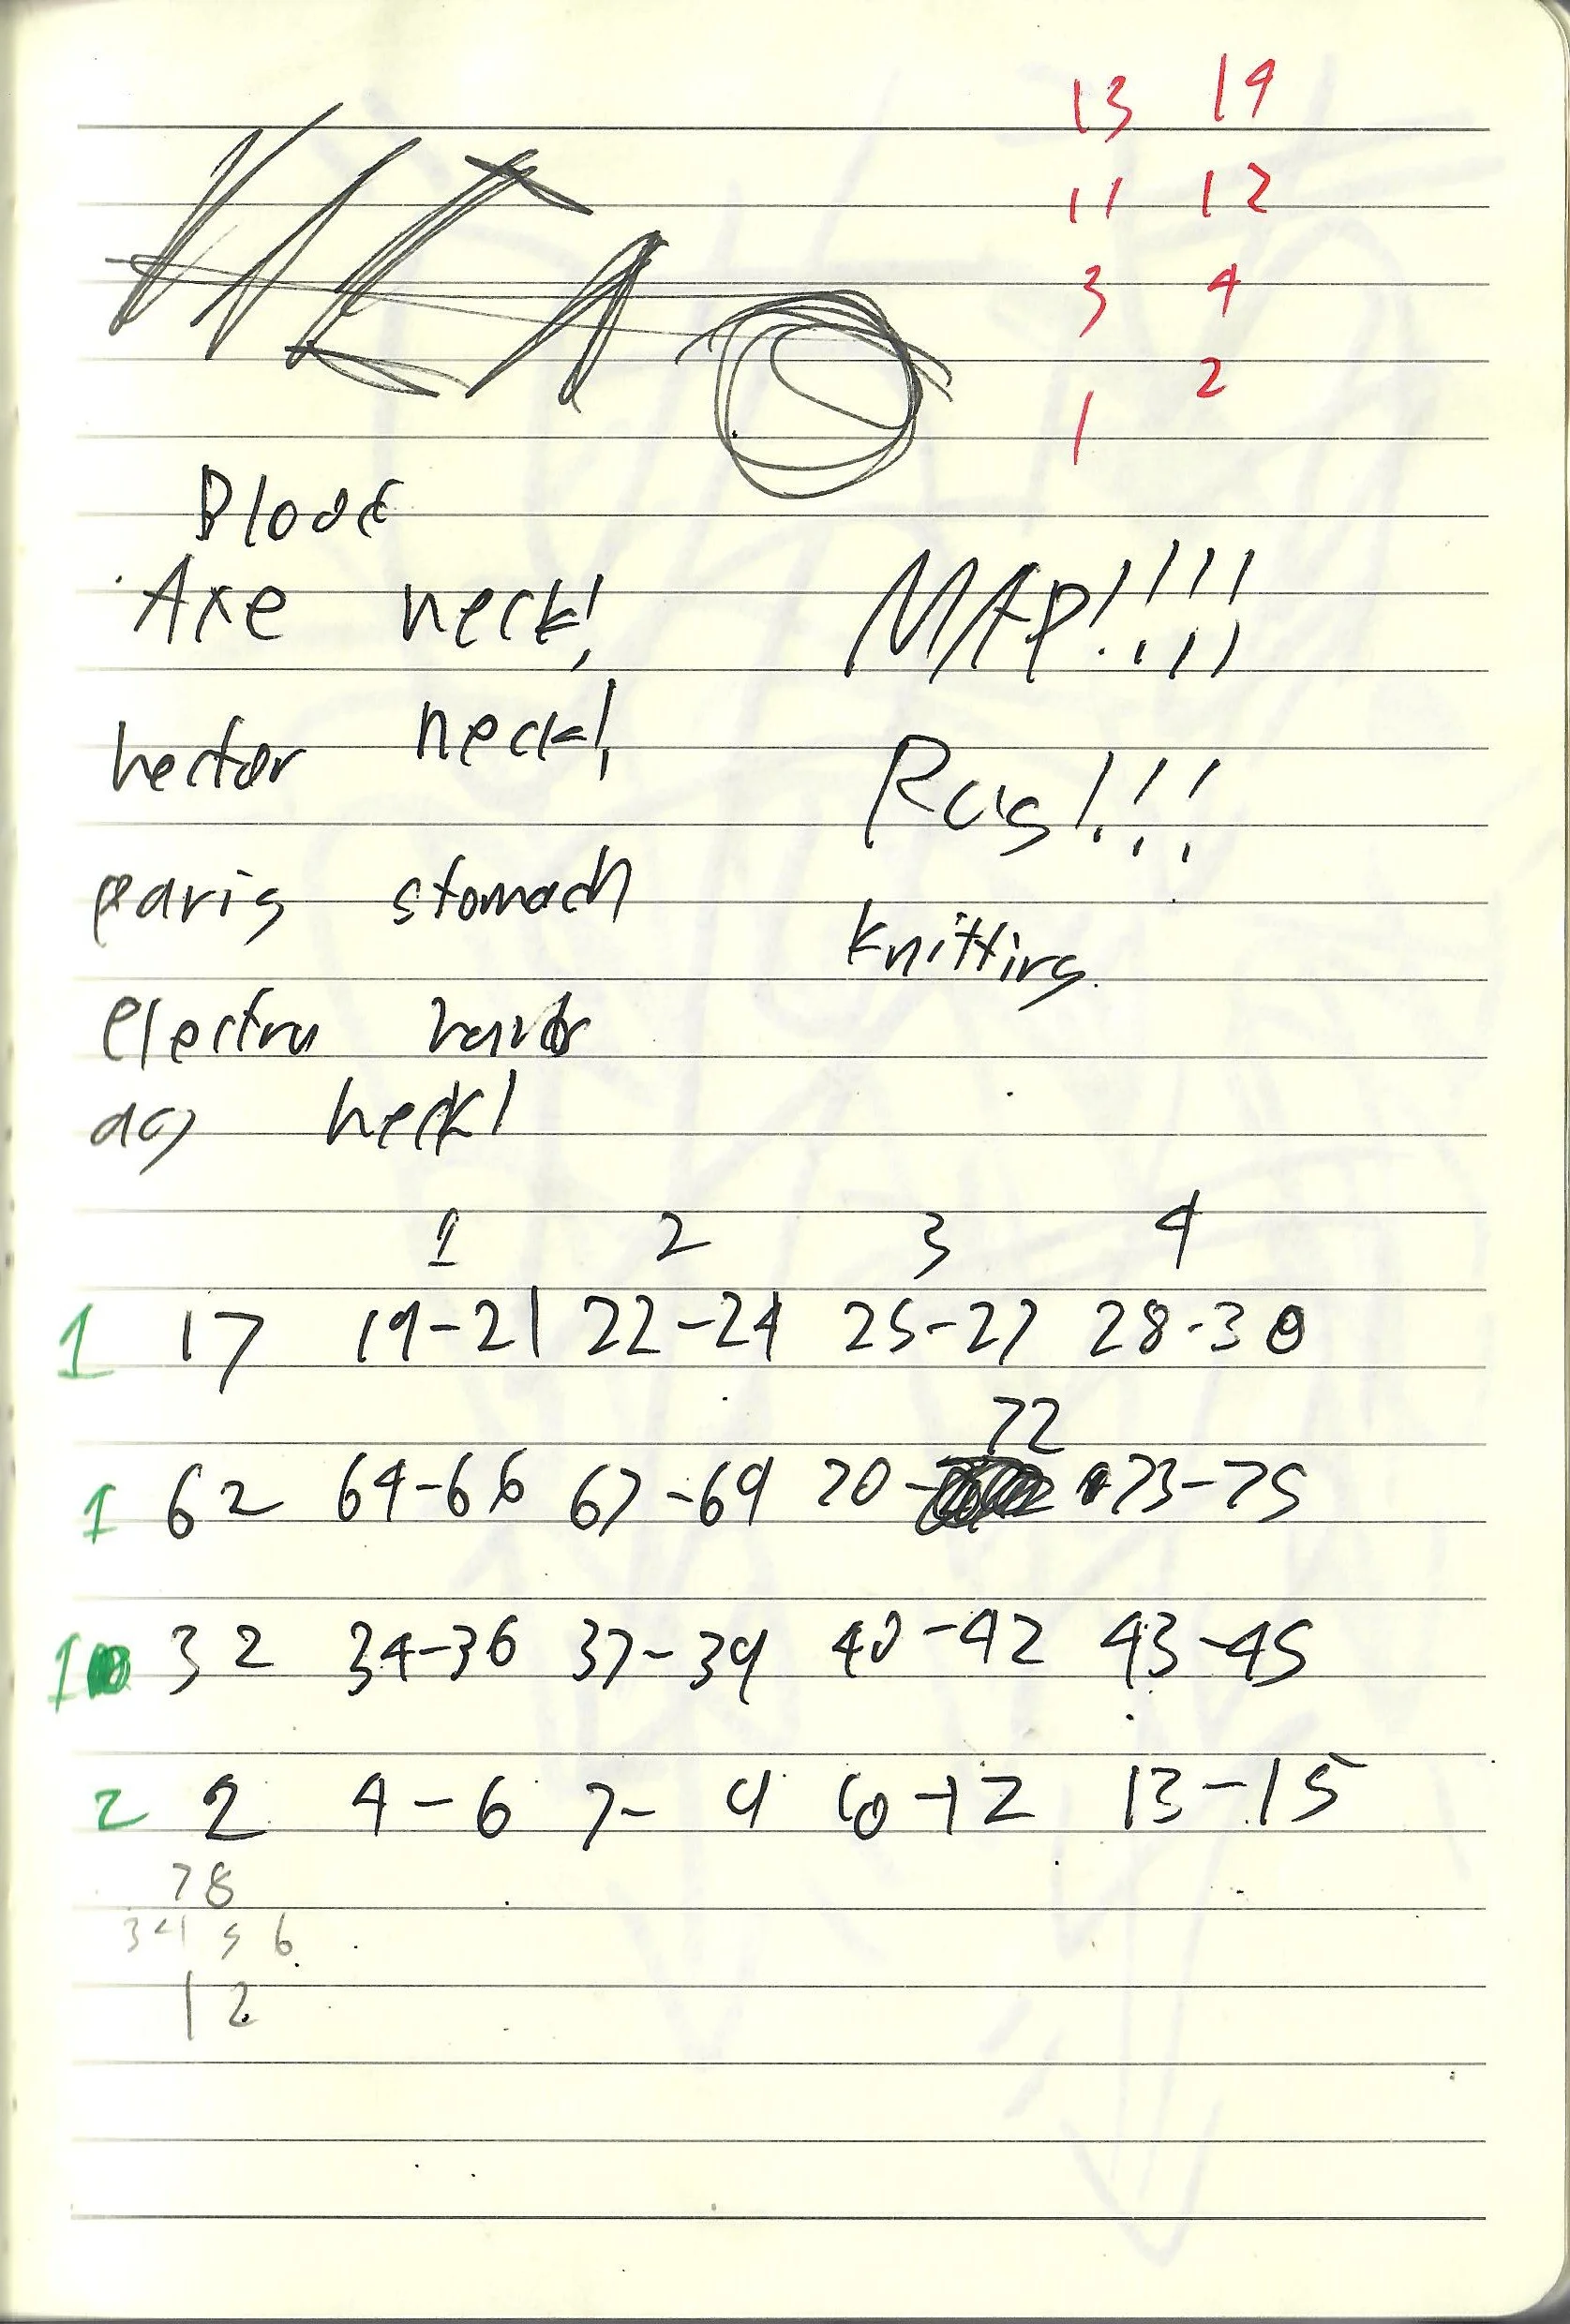 13 14
11 12
3 4
1 2
Blood
Axe neck!
MAP!!!!
hector neck!
Rug!!!
paris stomach
knitting.
electra
ag neck!
1 2 3 4
1 17 19-21 22-24 25-27 28-30
72
1 62 64-66 67-69 70- 73-75
1 32 34-36 37-39 40-42 43-45
2 2 4-6 7-9 10-12 13-15
7 8
3 4 5 6
1 2